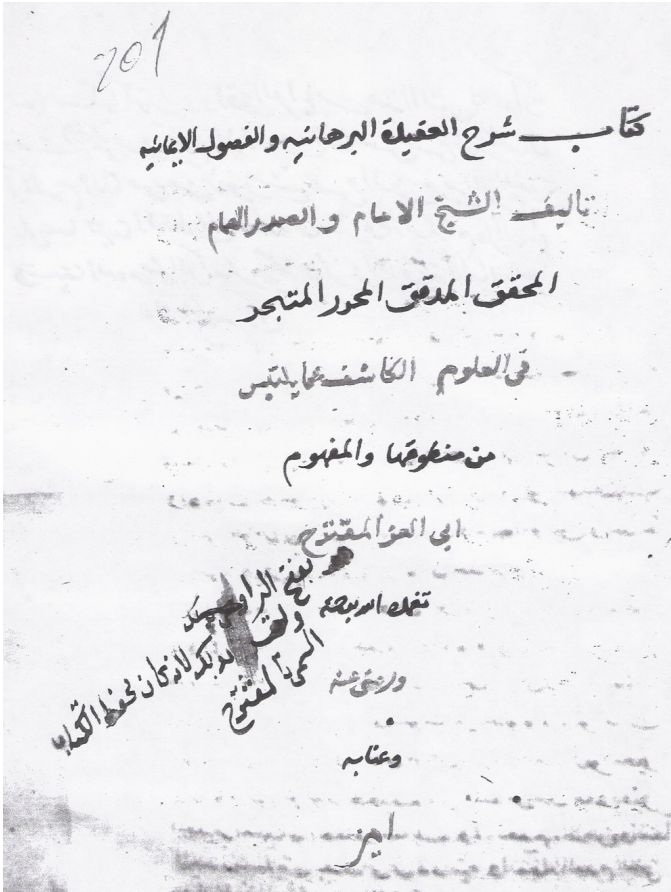 201
كتاب شرح العقيدة البرهانيه والفصول الايمانيه
تاليف الشيخ الامام والصدر الهمام
المحقق المدقق المحرر المتبحر
فى العلوم الكاشف عما يلتبس
من منطوقها والمفهوم
ابى العز المقترح
تغمده الله برحمته
ورضى عنه
وعنا به
امين
بفتح الراء
ولقب بذلك لانه كان يحفظ الكتاب
المسمى بالمقترح